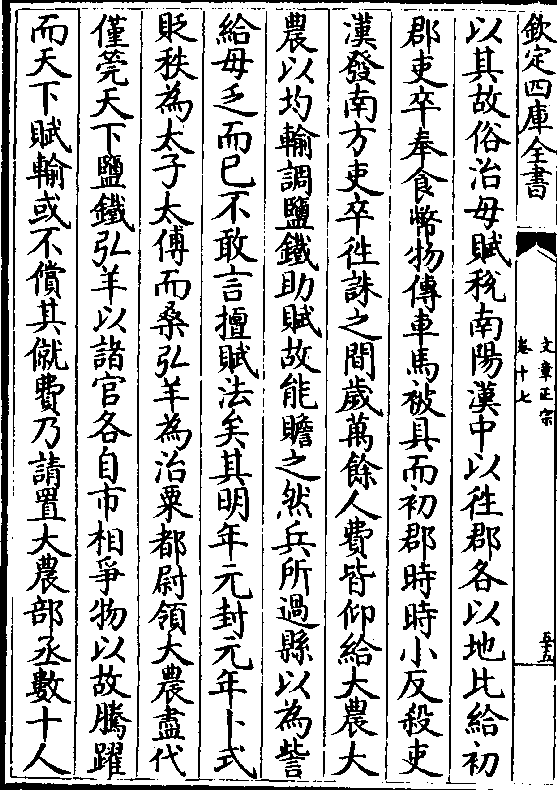 欽定四庫全書
文章正宗
卷十七
五十五
以其故俗治毋賦稅南陽漢中以徃郡各以地比給初
郡吏卒奉食幣物傳車馬被具而初郡時時小反殺吏
漢發南方吏卒徃誅之間歲萬餘人費皆仰給大農大
農以均輸調鹽鐵助賦故能贍之然兵所過縣以為訾
給毋乏而已不敢言擅賦法矣其明年元封元年卜式
貶秩為太子太傅而桑弘羊為治粟都尉領大農盡代
僅筦天下鹽鐵弘羊以諸官各自市相爭物以故騰躍
而天下賦輸或不償其僦費乃請置大農部丞數十人